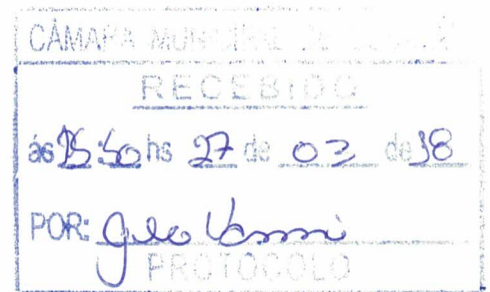 CÂMARA MUNICIPAL
RECEBIDO
ás 15:50 hs 27 de 03 de 18
POR: Geo Vanni
PROTOCOLO